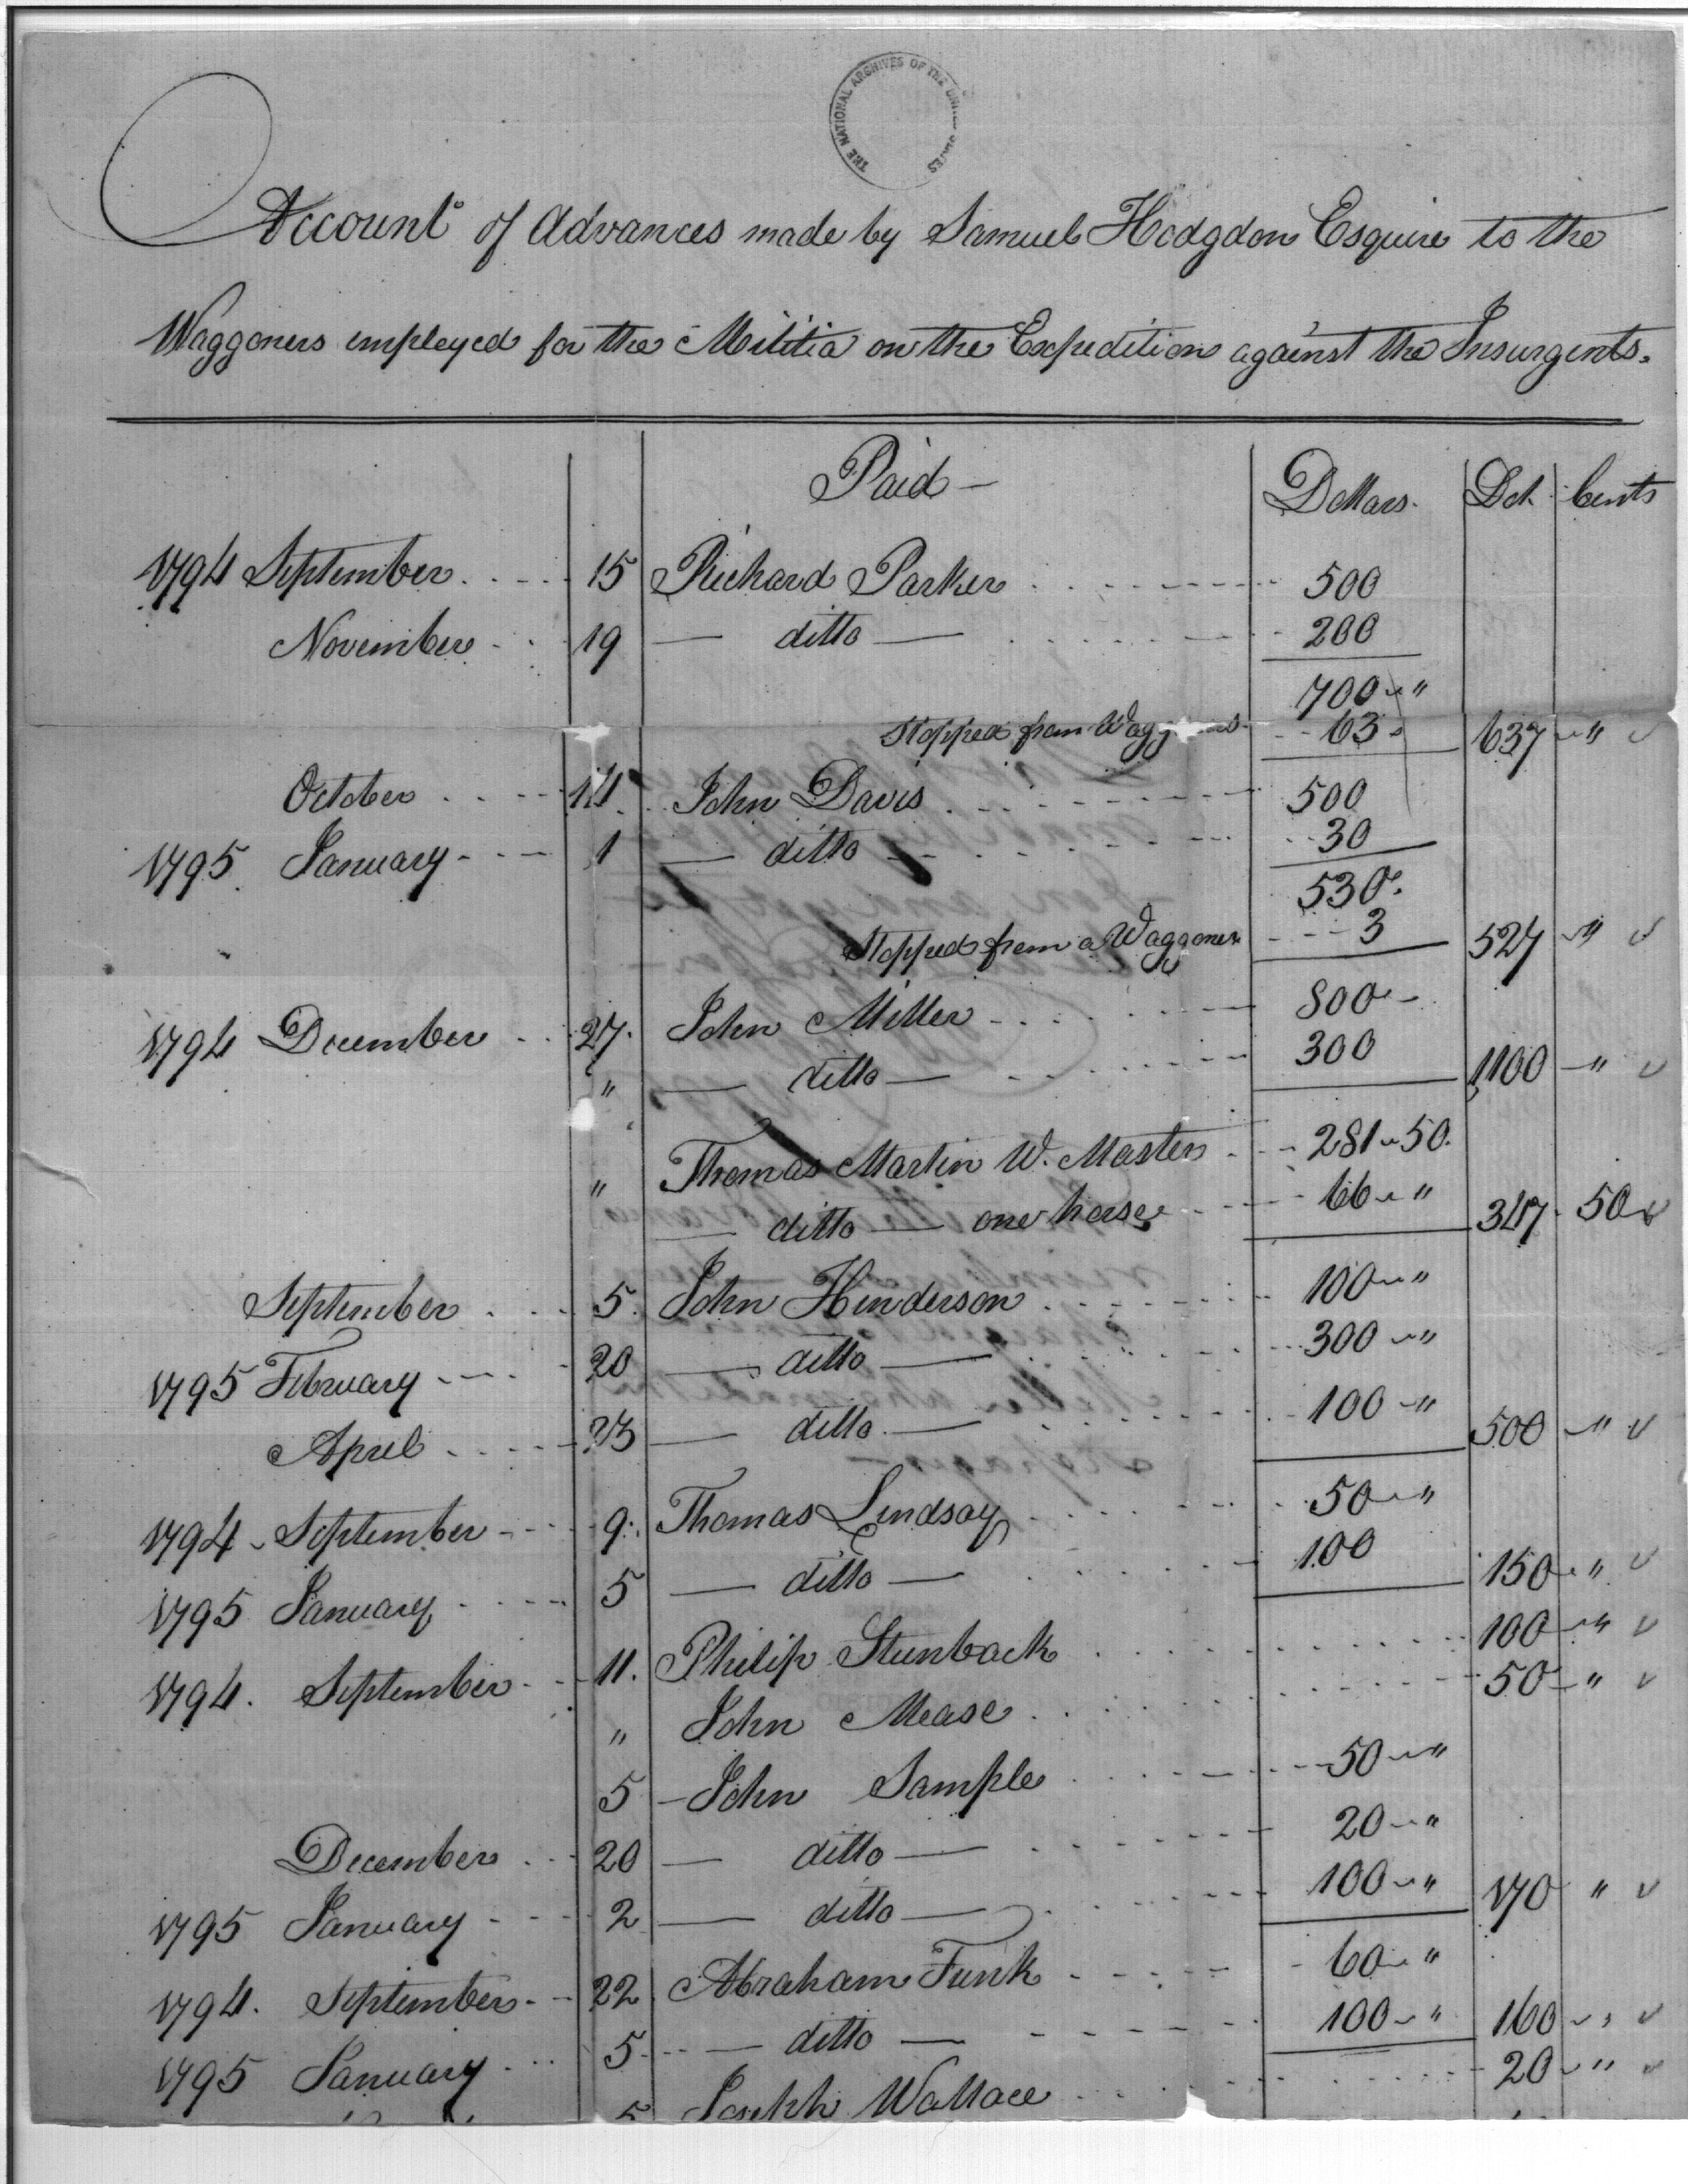 THE NATIONAL ARCHIVES OF THE UNITED STATES
Account of Advances made by Samuel Hodgdon Esquire to the
Waggoners employed for the Militia on the Expedition against the Insurgents.
Paid — Dollars. Dol. Cents
1794 September 15 Richard Parker 500
November 19 — ditto — 200
700 "
Stopped from Waggoners 63 637 "
October 14 John Davis 500
1795 January 1 — ditto 30
530
Stopped from a Waggoner 3 527 "
1794 December 27 John Miller 800
" — ditto — 300 1100 "
" Thomas Martin W. Master 281 50
— ditto — one horse 66 " 347 50
September 5 John Henderson 100 "
1795 February 20 — ditto — 300 "
April 23 — ditto — 100 " 500 "
1794 September 9 Thomas Lindsay 50 "
1795 January 5 — ditto — 100 150 "
1794 September 11 Philip Stunback 100 "
" John Mease 50 "
5 John Sample 50 "
December 20 — ditto — 20 "
1795 January 2 — ditto — 100 " 170 "
1794 September 22 Abraham Funk 60 "
1795 January 5 — ditto — 100 " 160 "
5 Joseph Wallace 20 "